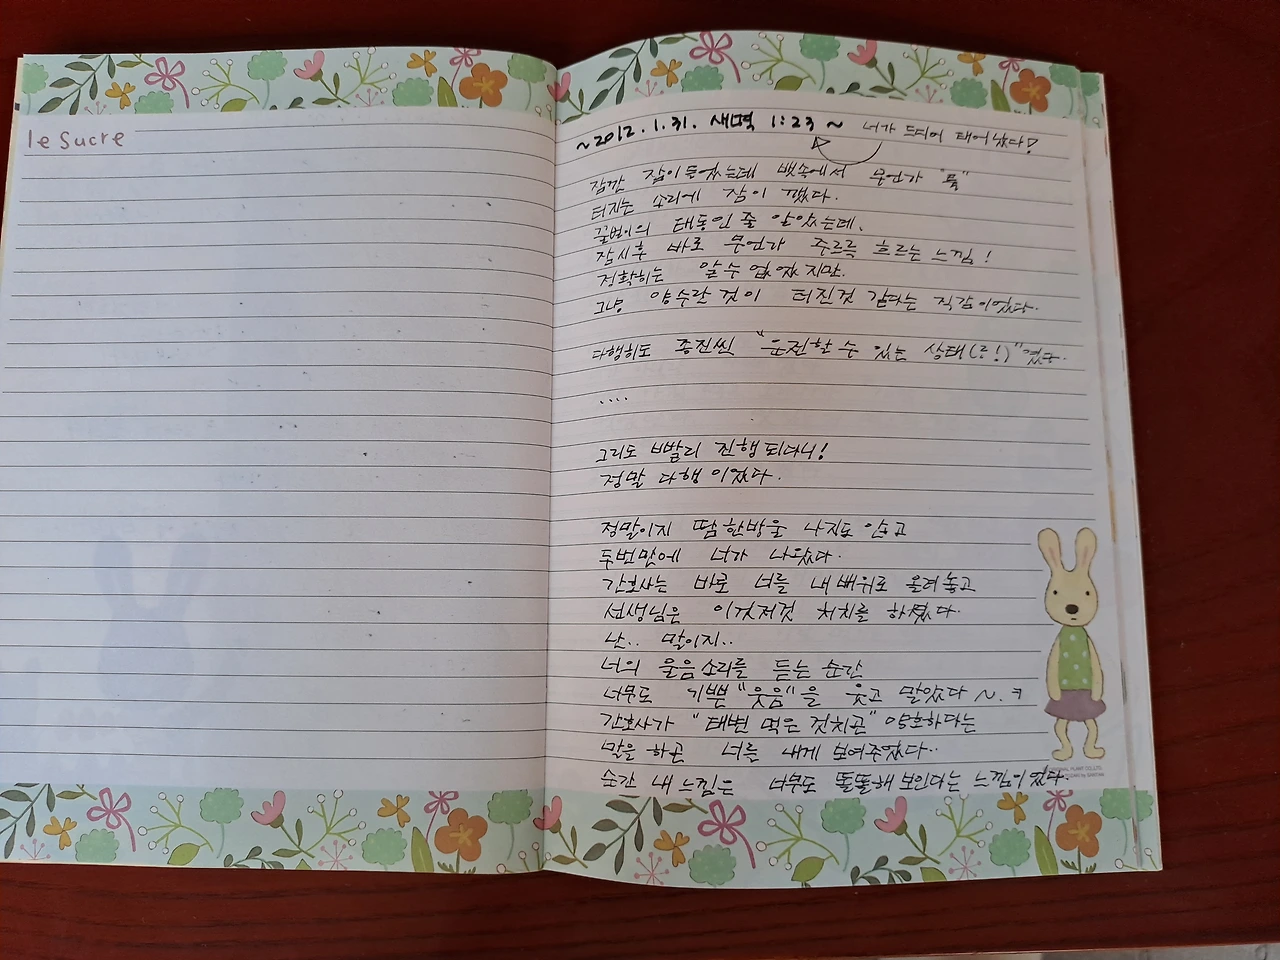 le Sucre
~2012. 1. 31. 새벽 1:23 ~ 너가 드디어 태어났다!
잠깐 잠이 들었는데 뱃속에서 무언가 "툭"
터지는 소리에 잠이 깼다.
꿀벌이의 태동인 줄 알았는데,
잠시후 바로 무언가 주르륵 흐르는 느낌!
정확히는 알 수 없었지만.
그냥 양수란 것이 터진것 같다는 직감이었다.
다행히도 종진씬 "운전할 수 있는 상태(ㄹ!)"였고.
....
그리도 빨리 진행되다니!
정말 다행이었다.
정말이지 땀 한방울 나지도 않고
두번만에 너가 나왔다.
간호사는 바로 너를 내 배위로 올려놓고
선생님은 이것저것 처치를 하셨다.
난.. 말이지..
너의 울음소리를 듣는 순간
너무도 기쁜 "웃음"을 웃고 말았다 ~.ㅋ
간호사가 "태변 먹은 것치곤" 양호하다는
말을 하곤 너를 내게 보여주었다..
순간 내 느낌은 너무도 똘똘해 보인다는 느낌이었다.